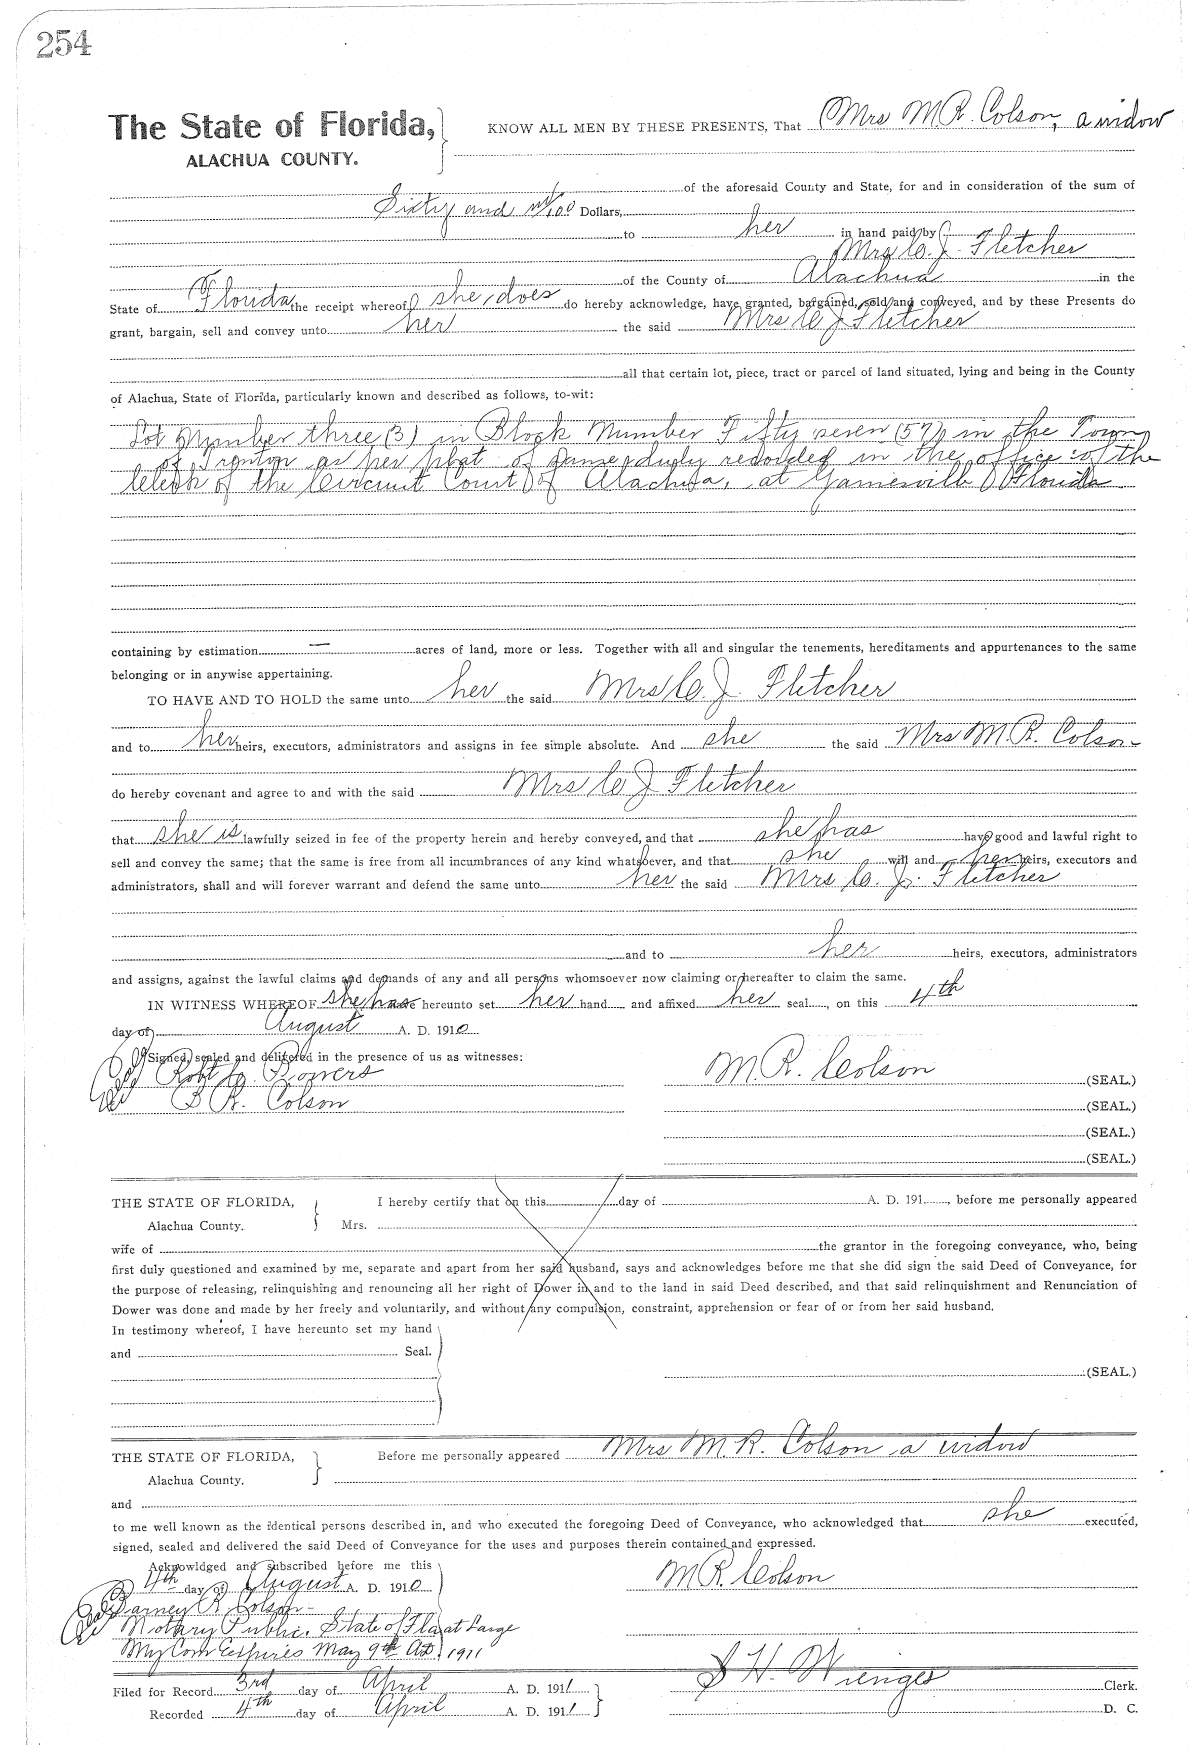 254
The State of Florida, KNOW ALL MEN BY THESE PRESENTS, That Mrs M.R. Colson, a widow
ALACHUA COUNTY.
of the aforesaid County and State, for and in consideration of the sum of
Sixty and no/100 Dollars,
to her in hand paid by
Mrs C. J. Fletcher
of the County of Alachua in the
State of Florida the receipt whereof she does do hereby acknowledge, have granted, bargained, sold and conveyed, and by these Presents do
grant, bargain, sell and convey unto her the said Mrs C J Fletcher
all that certain lot, piece, tract or parcel of land situated, lying and being in the County
of Alachua, State of Florida, particularly known and described as follows, to-wit:
Lot Number three (3) in Block Number Fifty seven (57) in the Town
of Trenton as per plat of same duly recorded in the office of the
Clerk of the Circuit Court of Alachua, at Gainesville Florida
containing by estimation — acres of land, more or less. Together with all and singular the tenements, hereditaments and appurtenances to the same
belonging or in anywise appertaining.
TO HAVE AND TO HOLD the same unto her the said Mrs C. J. Fletcher
and to her heirs, executors, administrators and assigns in fee simple absolute. And she the said Mrs M. R. Colson
do hereby covenant and agree to and with the said Mrs C J Fletcher
that she is lawfully seized in fee of the property herein and hereby conveyed, and that she has have good and lawful right to
sell and convey the same; that the same is free from all incumbrances of any kind whatsoever, and that she will and her heirs, executors and
administrators, shall and will forever warrant and defend the same unto her the said Mrs C. J. Fletcher
and to her heirs, executors, administrators
and assigns, against the lawful claims and demands of any and all persons whomsoever now claiming or hereafter to claim the same.
IN WITNESS WHEREOF she has have hereunto set her hand and affixed her seal, on this 4th
day of August A. D. 1910
Signed, sealed and delivered in the presence of us as witnesses:
Robt L. Powers M. R. Colson (SEAL.)
B R. Colson (SEAL.)
(SEAL.)
(SEAL.)
THE STATE OF FLORIDA, I hereby certify that on this day of A. D. 191, before me personally appeared
Alachua County. Mrs.
wife of the grantor in the foregoing conveyance, who, being
first duly questioned and examined by me, separate and apart from her said husband, says and acknowledges before me that she did sign the said Deed of Conveyance, for
the purpose of releasing, relinquishing and renouncing all her right of Dower in and to the land in said Deed described, and that said relinquishment and Renunciation of
Dower was done and made by her freely and voluntarily, and without any compulsion, constraint, apprehension or fear of or from her said husband.
In testimony whereof, I have hereunto set my hand
and Seal.
(SEAL.)
THE STATE OF FLORIDA, Before me personally appeared Mrs M. R. Colson a widow
Alachua County.
and
to me well known as the identical persons described in, and who executed the foregoing Deed of Conveyance, who acknowledged that she executed,
signed, sealed and delivered the said Deed of Conveyance for the uses and purposes therein contained and expressed.
Acknowldged and subscribed before me this
4th day of August A. D. 1910 M R. Colson
Seal Barney R. Colson
Notary Public, State of Fla at Large
My Com Expires May 9th A.D. 1911
Filed for Record 3rd day of April A. D. 1911 S H. Wienges Clerk.
Recorded 4th day of April A. D. 1911 D. C.